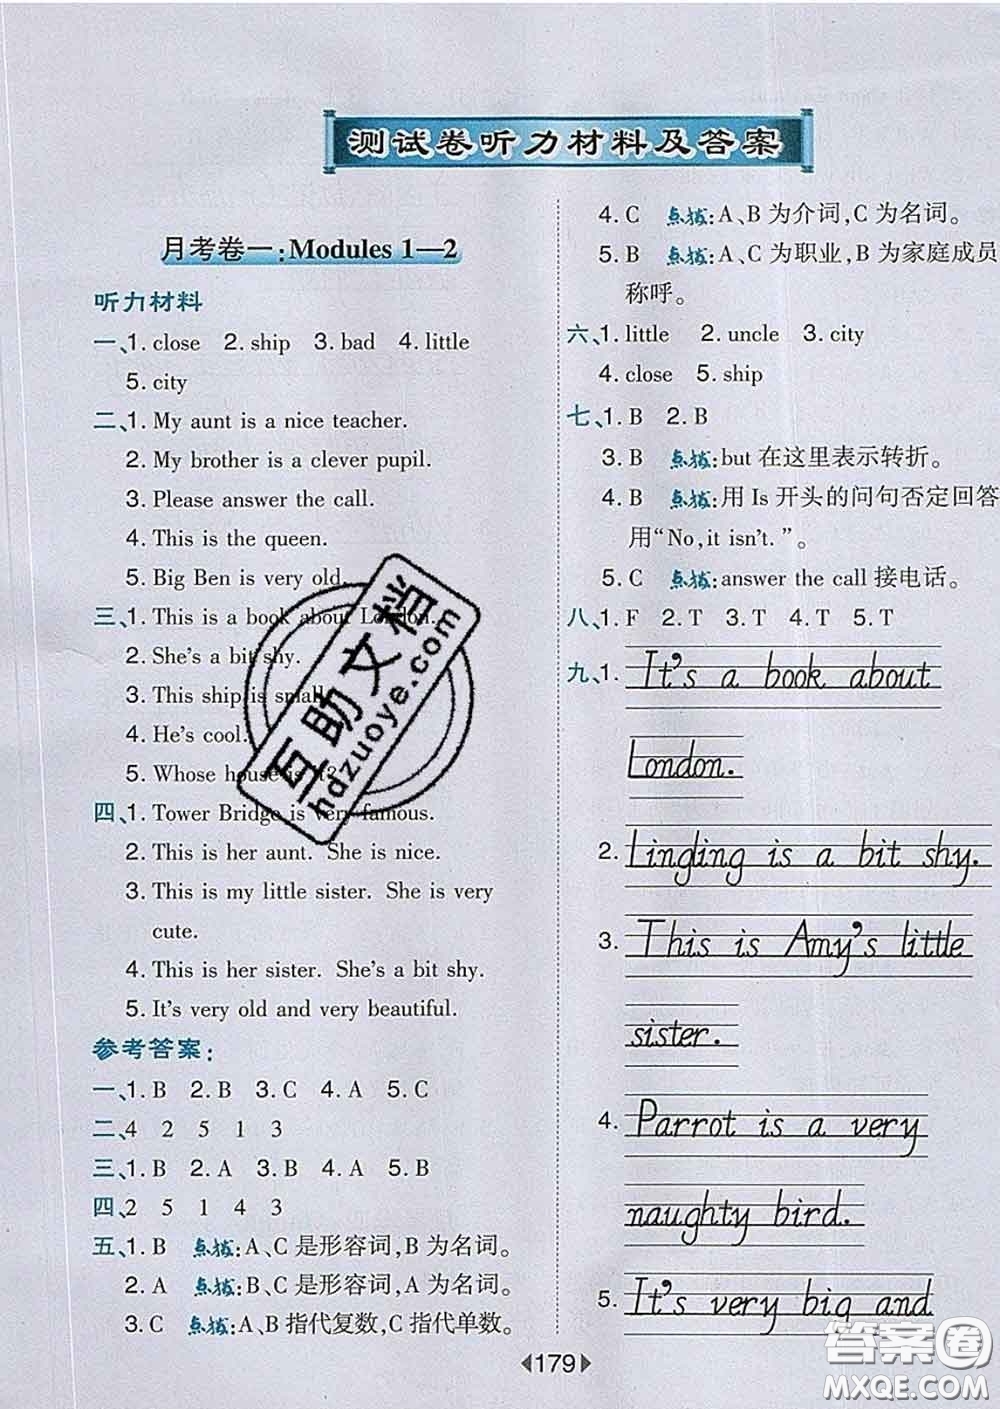 测试卷听力材料及答案
月考卷一:Modules 1—2
听力材料
一、1. close 2. ship 3. bad 4. little
5. city
二、1. My aunt is a nice teacher.
2. My brother is a clever pupil.
3. Please answer the call.
4. This is the queen.
5. Big Ben is very old.
三、1. This is a book about London.
2. She's a bit shy.
3. This ship is small.
4. He's cool.
5. Whose house is it?
四、1. Tower Bridge is very famous.
2. This is her aunt. She is nice.
3. This is my little sister. She is very
cute.
4. This is her sister. She's a bit shy.
5. It's very old and very beautiful.
参考答案:
一、1. B 2. B 3. C 4. A 5. C
二、4 2 5 1 3
三、1. B 2. A 3. B 4. A 5. B
四、2 5 1 4 3
五、1. B 点拨:A、C是形容词,B为名词。
2. A 点拨:B、C是形容词,A为名词。
3. C 点拨:A、B指代复数,C指代单数。
4. C 点拨:A、B为介词,C为名词。
5. B 点拨:A、C为职业,B为家庭成员
称呼。
六、1. little 2. uncle 3. city
4. close 5. ship
七、1. B 2. B
3. B 点拨:but在这里表示转折。
4. B 点拨:用Is开头的问句否定回答
用“No,it isn't.”。
5. C 点拨:answer the call接电话。
八、1. F 2. T 3. T 4. T 5. T
九、1. It's a book about
London.
2. Lingling is a bit shy.
3. This is Amy's little
sister.
4. Parrot is a very
naughty bird.
5. It's very big and
179
互助文档
hdzuoye.com
答案圈
MXQE.COM